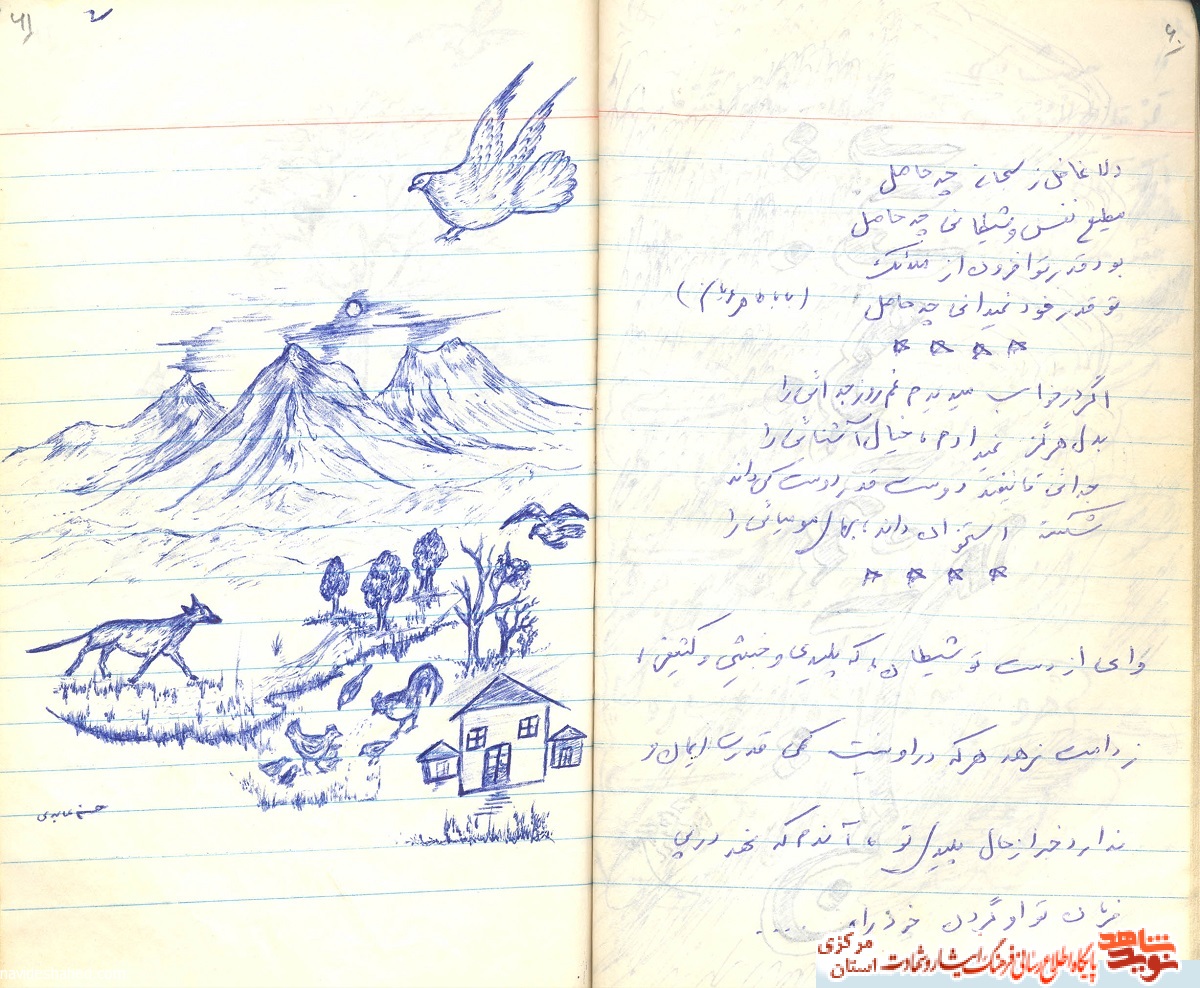 ۶۰
دلا غافل ز سبحانی چه حاصل
مطیع نفس و شیطانی چه حاصل
بود قدر تو افزون از ملائک
تو قدر خود نمیدانی چه حاصل
اگر در خواب میدیدم غم روز جدائی را
بدل هرگز نمیدادم، خیال آشنائی را
جدائی تا نیفتد دوست قدر دوست کی داند
شکسته استخوان داند؛ بهای مومیائی را
وای از دست تو شیطان، که پلیدی و خبیثی و کثیفی،
ز دامت نرهد هرکه در او نیست کمی قدرت ایمان و
ندارد خبر از حال پلید تو، آندم که نهد در پی
فرمان تو او گردن خود را، .....
۶۱
حسن عابدی
نوید شاهد
پایگاه اطلاع رسانی فرهنگ ایثار و شهادت
استان مرکزی
navideshahed.com